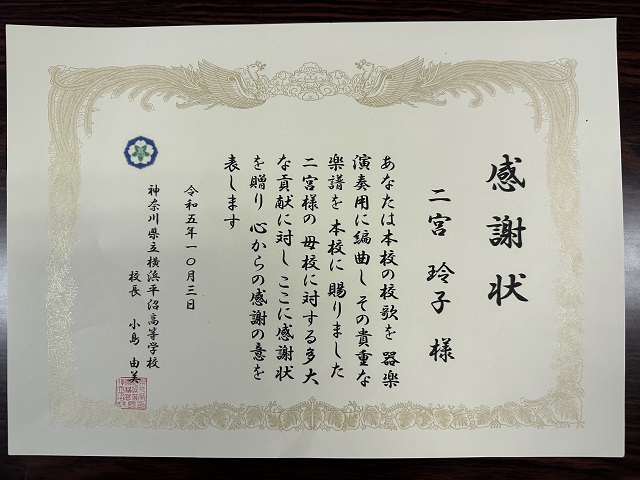 感謝状
二宮 玲子 様
あなたは本校の校歌を 器楽
演奏用に編曲し その貴重な
楽譜を 本校に 賜りました
二宮様の 母校に対する多大
な貢献に対し ここに感謝状
を贈り 心からの感謝の意を
表します
令和五年一〇月三日
神奈川県立横浜平沼高等学校
校長 小島 由美